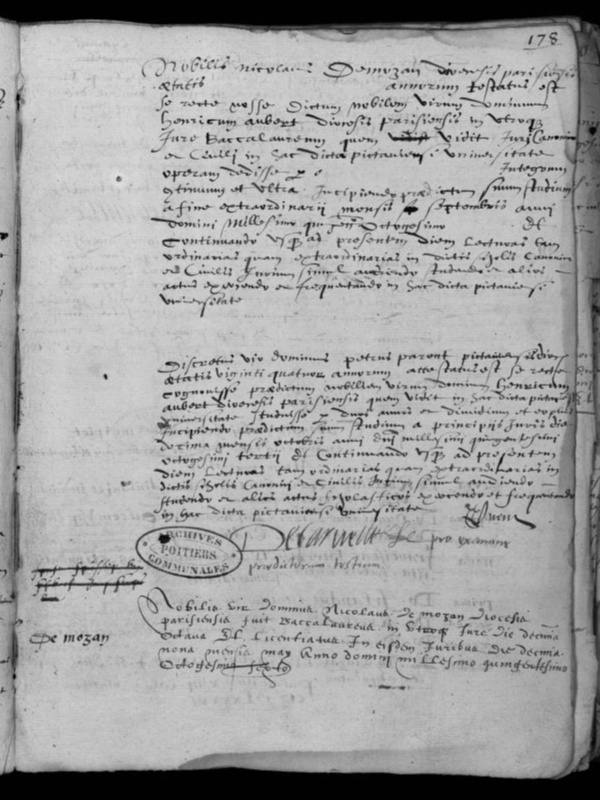 178
Nobilis Nicolaus Demozan diocesis parisiensis
ætatis annorum testatus est
se recte nosse dictum nobilem virum dominum
Henricum aubert diocesis parisiensis in utroq
Jure Baccalaureum quem vidit Juri Canonico
et Civili in hac dicta pictaviensi universitate
operam dedisse integrum
et ultra Incipiendo prædictum suum studium
a fine extraordinarii mensis septembris anni
domini millesimo octogesimo et
Continuando usq ad presentem diem lecturas tam
ordinarias quam extraordinarias in dictis scholis Canonici
et Civilis Jurium simul audiendo studendo et alios
actus exercendo et frequentando in hac dicta pictaviensi
universitate
Discretus vir dominus petrus parent
ætatis viginti quatuor annorum attestatus est se recte
Cognovisse prædictum nobilem virum dominum henricum
aubert diocesis parisiensis quem vidit in hac dicta
universitate studuisse duos annos et dimidium et
Incipiendo prædictum suum studium a principiis Juris die
decima mensis octobris anni dni millesimi quingentesimi
octogesimi tertii et Continuando usq ad presentem
diem lecturas tam ordinarias quam extraordinarias in
dictis scholis Canonici et Civilis Jurium simul audiendo
studendo et alios actus scholasticos exercendo et frequentando
in hac dicta pictaviensi universitate
ARCHIVES
POITIERS
COMMUNALES
pro
prædictorum testium
De mozan
Nobilis vir dominus Nicolaus de mozan diocesis
parisiensis fuit Baccalaureus in utroq Jure die decima
octava et licentiatus In eisdem Juribus die decima
nona mensis may Anno domini millesimo quingentesimo
octogesimo sexto